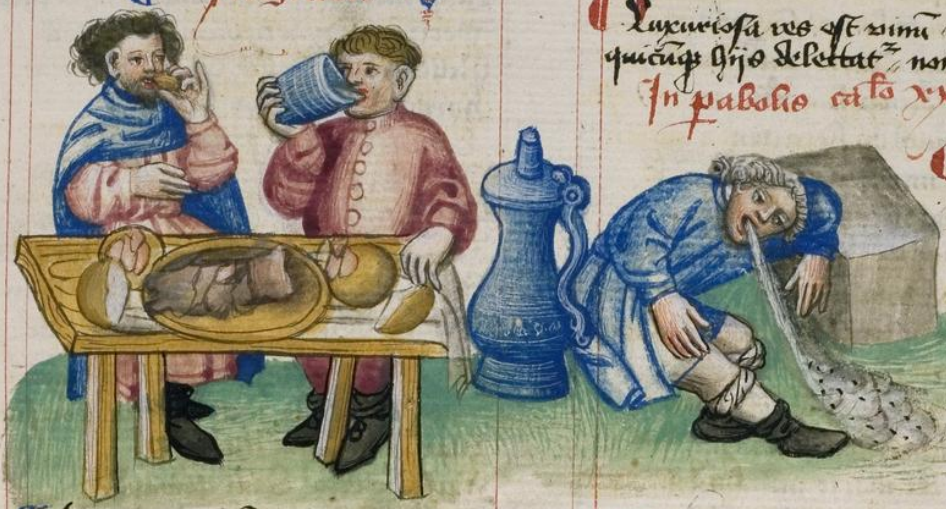 Luxuriosa res est vinū
quicūqȝ hijs delectat᷑ non
In ꝑabolis cał̊o xx